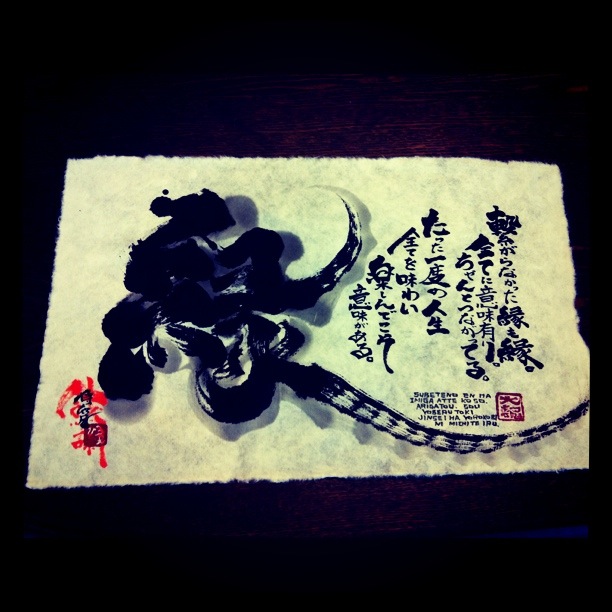 繋がらなかった縁も縁。
全てに意味有り。
ちゃんとつながってる。
たった一度の人生
全てを味わい
楽しんでこそ
意味がある。
縁
SUBETENO EN NA
IMIGA ATTE KOSO.
ARIGATOU. SOU
YOBERU TOKI
JINSEI HA YOROKOBI
NI MICHITE IRU.